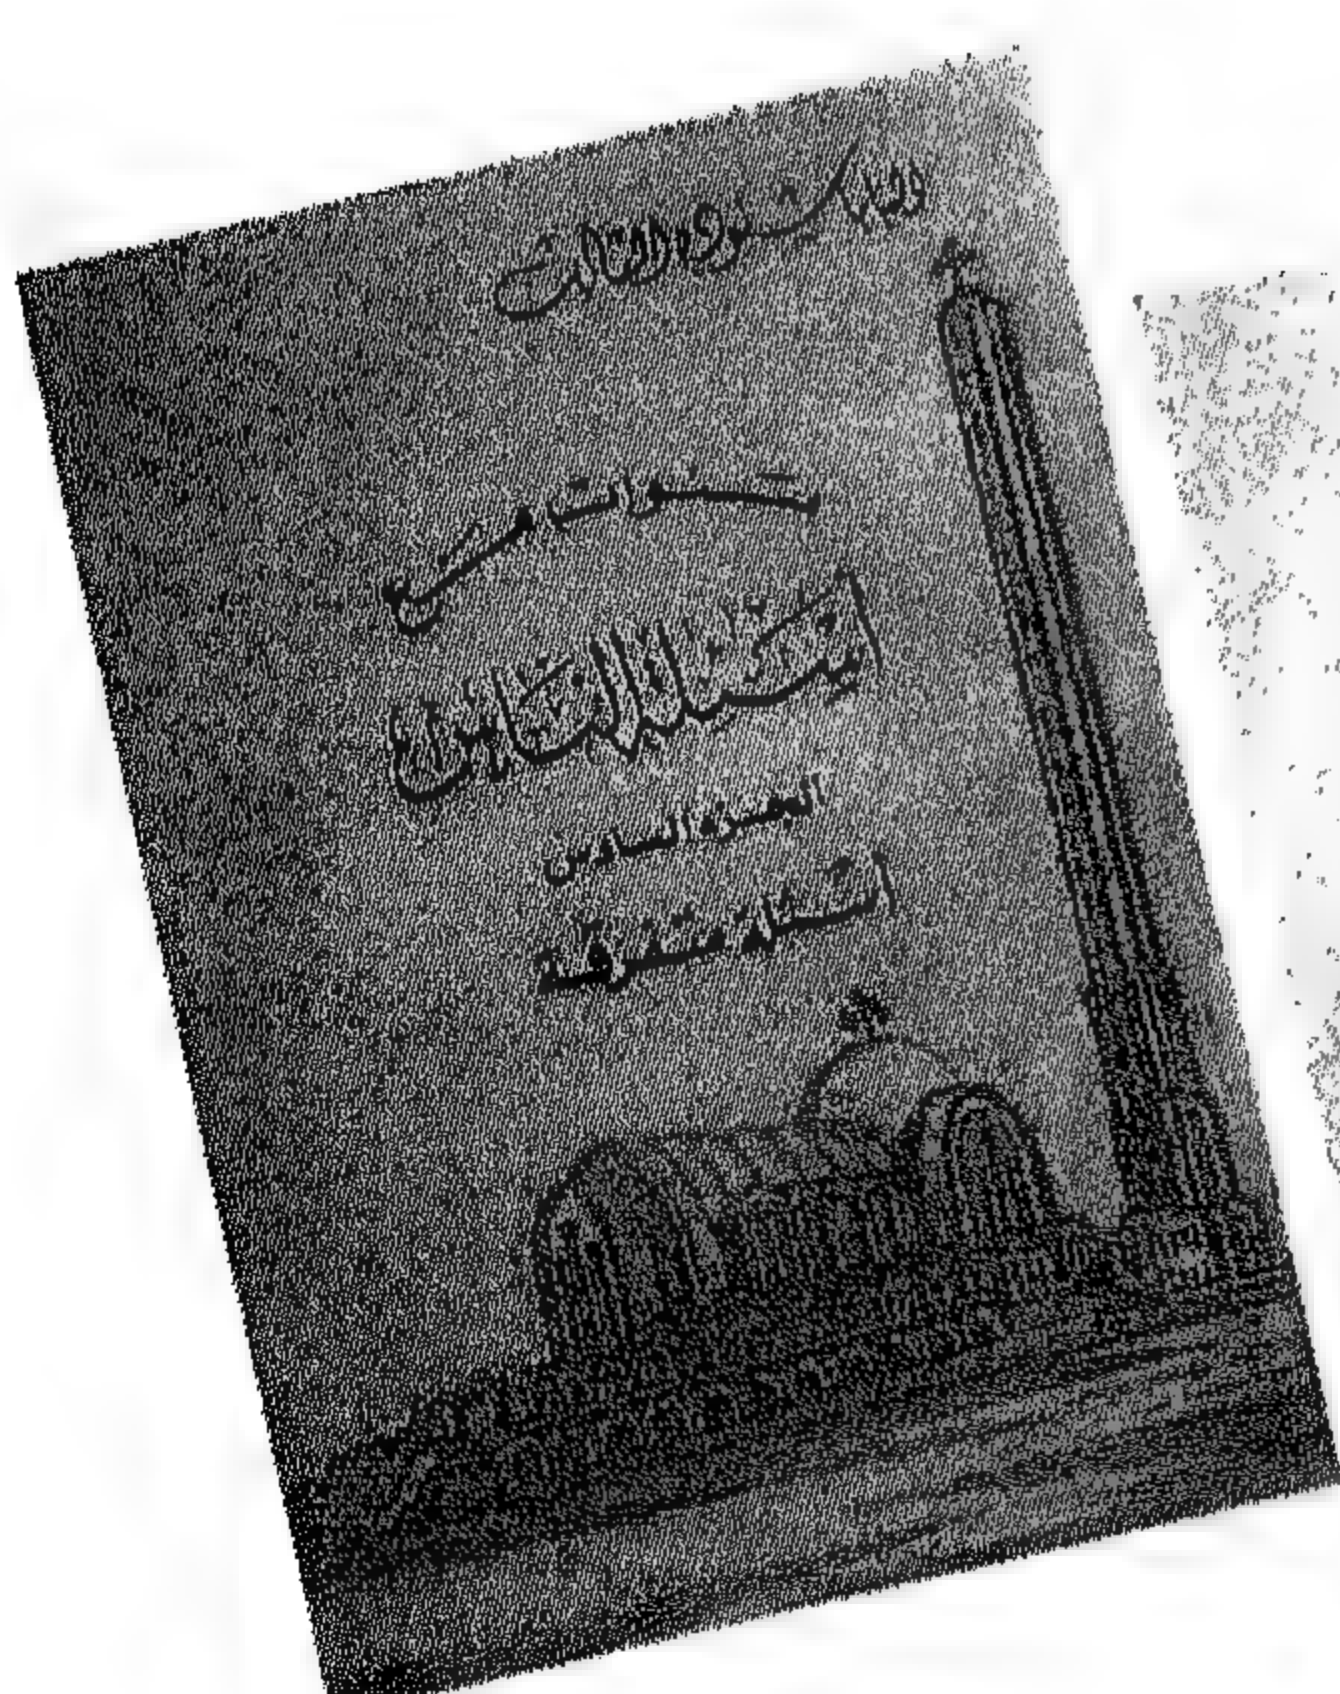 البابا شنودة الثالث
سنوات مع
أسئلة الناس
الجزء السادس
أسئلة متفرقة